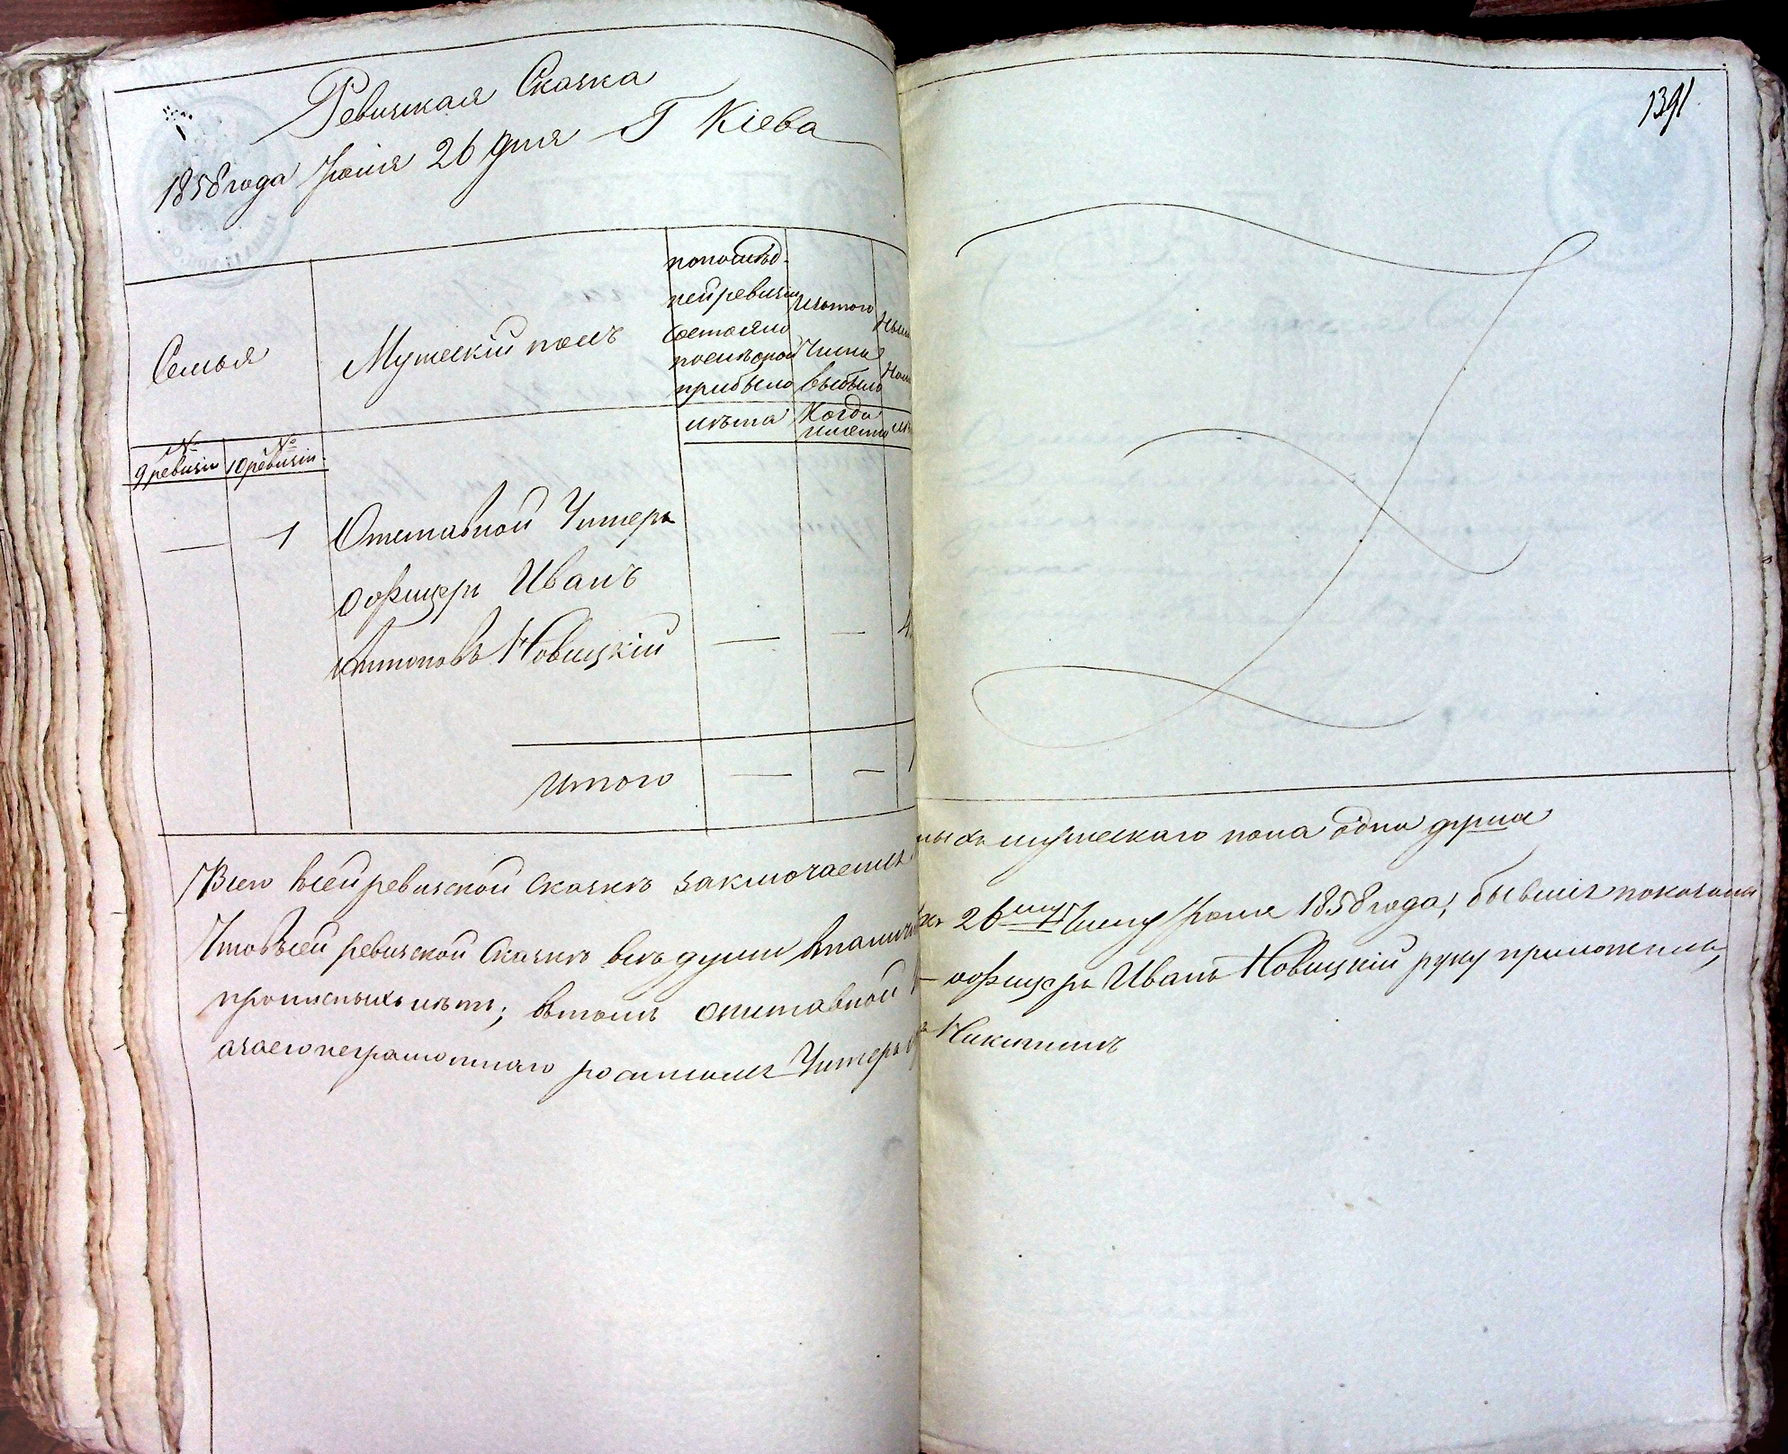 1391
Ревизкая Сказка
1858 года Іюня 26 дня Г Кіева
Семья
Мужескій полъ
по послѣд-
ней ревизіи
состояло
и послѣ оной
прибыло
Изъ того
Числа
выбыло
лѣта
Когда
именно
№
9 ревизіи
№
10 ревизіи
— 1 Отставной Унтеръ
Офицеръ Иванъ
Антоновъ Новицкій — —
Итого — — 1
Всего въ сей ревизской сказкѣ заключается
ныхъ мужескаго пола одна душа
Что въ сей ревизской Сказкѣ всѣ души въ налич
къ 26му Числу Іюня 1858 года, бывшія показаны
прописныхъ нѣтъ; въ томъ отставной
офицеръ Иванъ Новицкій руку приложилъ,
а за его неграмотнаго росписался Унтеръ
Никитинъ